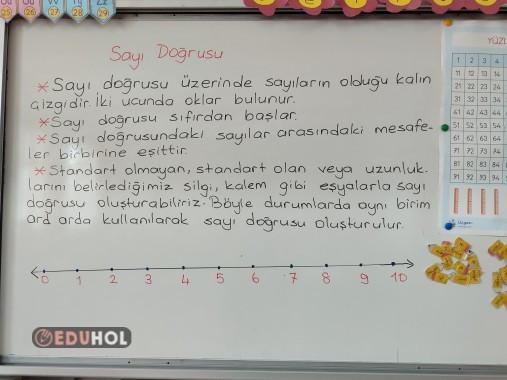 Oo
Öö
Vv
Yy
Zz
25
26
27
28
29
Sayı Doğrusu
* Sayı doğrusu üzerinde sayıların olduğu kalın
çizgidir. İki ucunda oklar bulunur.
* Sayı doğrusu sıfırdan başlar.
* Sayı doğrusundaki sayılar arasındaki mesafe-
ler birbirine eşittir.
* Standart olmayan, standart olan veya uzunluk-
larını belirlediğimiz silgi, kalem gibi eşyalarla sayı
doğrusu oluşturabiliriz. Böyle durumlarda aynı birim
ard arda kullanılarak sayı doğrusu oluşturulur.
0 1 2 3 4 5 6 7 8 9 10
EDUHOL
YÜZL
1 2 3 4
11 12 13 14
21 22 23 24
31 32 33 34
41 42 43 44
51 52 53 54
61 62 63 64
71 72 73 74
81 82 83 84
91 92 93 94